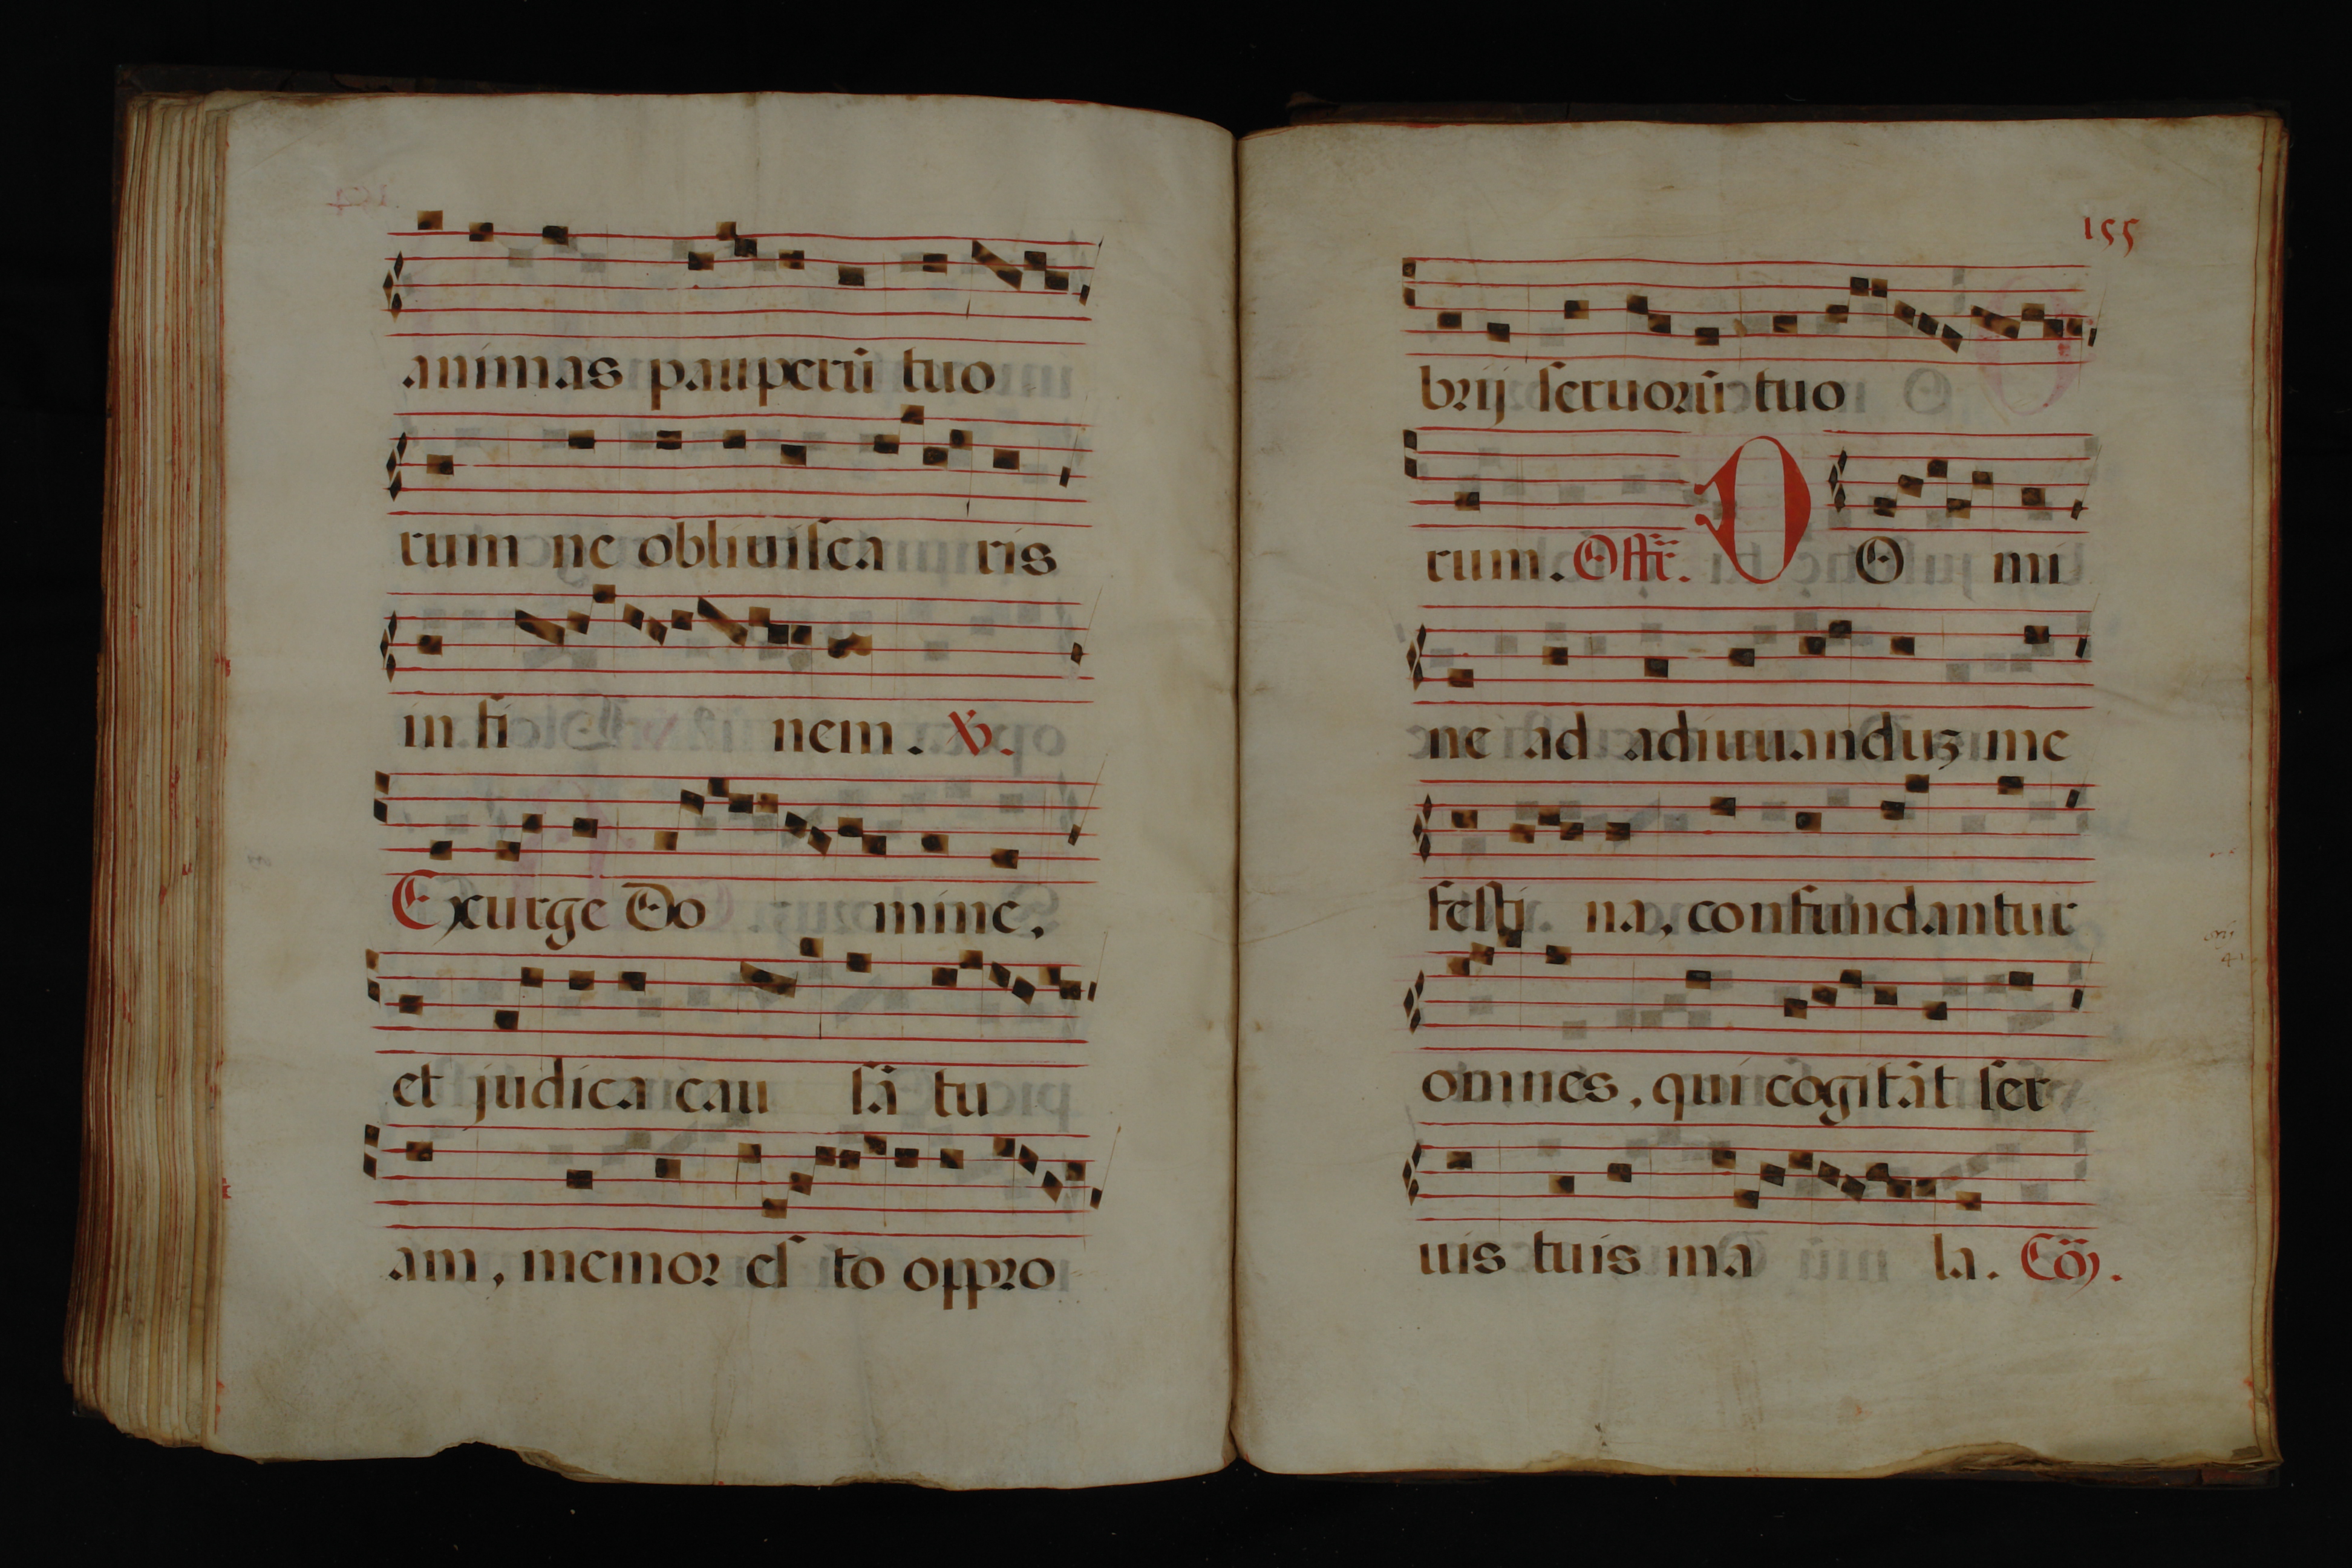 animas pauperũ tuo
rum ne obliuiſca ris
in fi nem. ℣.
Exurge Do mine,
et judica cau ſã tu
am, memor eſ to oppro
155
brij ſeruorũ tuo
rum. Offr̃. D O mi
ne ad adiuuanduʒ me
feſti na, confundantur
omnes, qui cogitãt ſer
uis tuis ma la. Cõ.